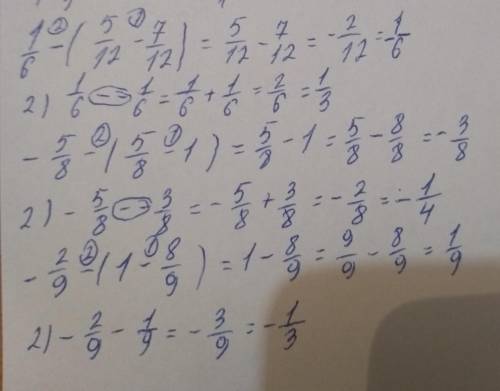 1/6 -② (5/12 -① 7/12) = 5/12 - 7/12 = -2/12 = -1/6
2) 1/6 - - 1/6 = 1/6 + 1/6 = 2/6 = 1/3
-5/8 -② (5/8 -① 1) = 5/8 - 1 = 5/8 - 8/8 = -3/8
2) -5/8 - - 3/8 = -5/8 + 3/8 = -2/8 = -1/4
-2/9 -② (1 -① 8/9) = 1 - 8/9 = 9/9 - 8/9 = 1/9
2) -2/9 - 1/9 = -3/9 = -1/3